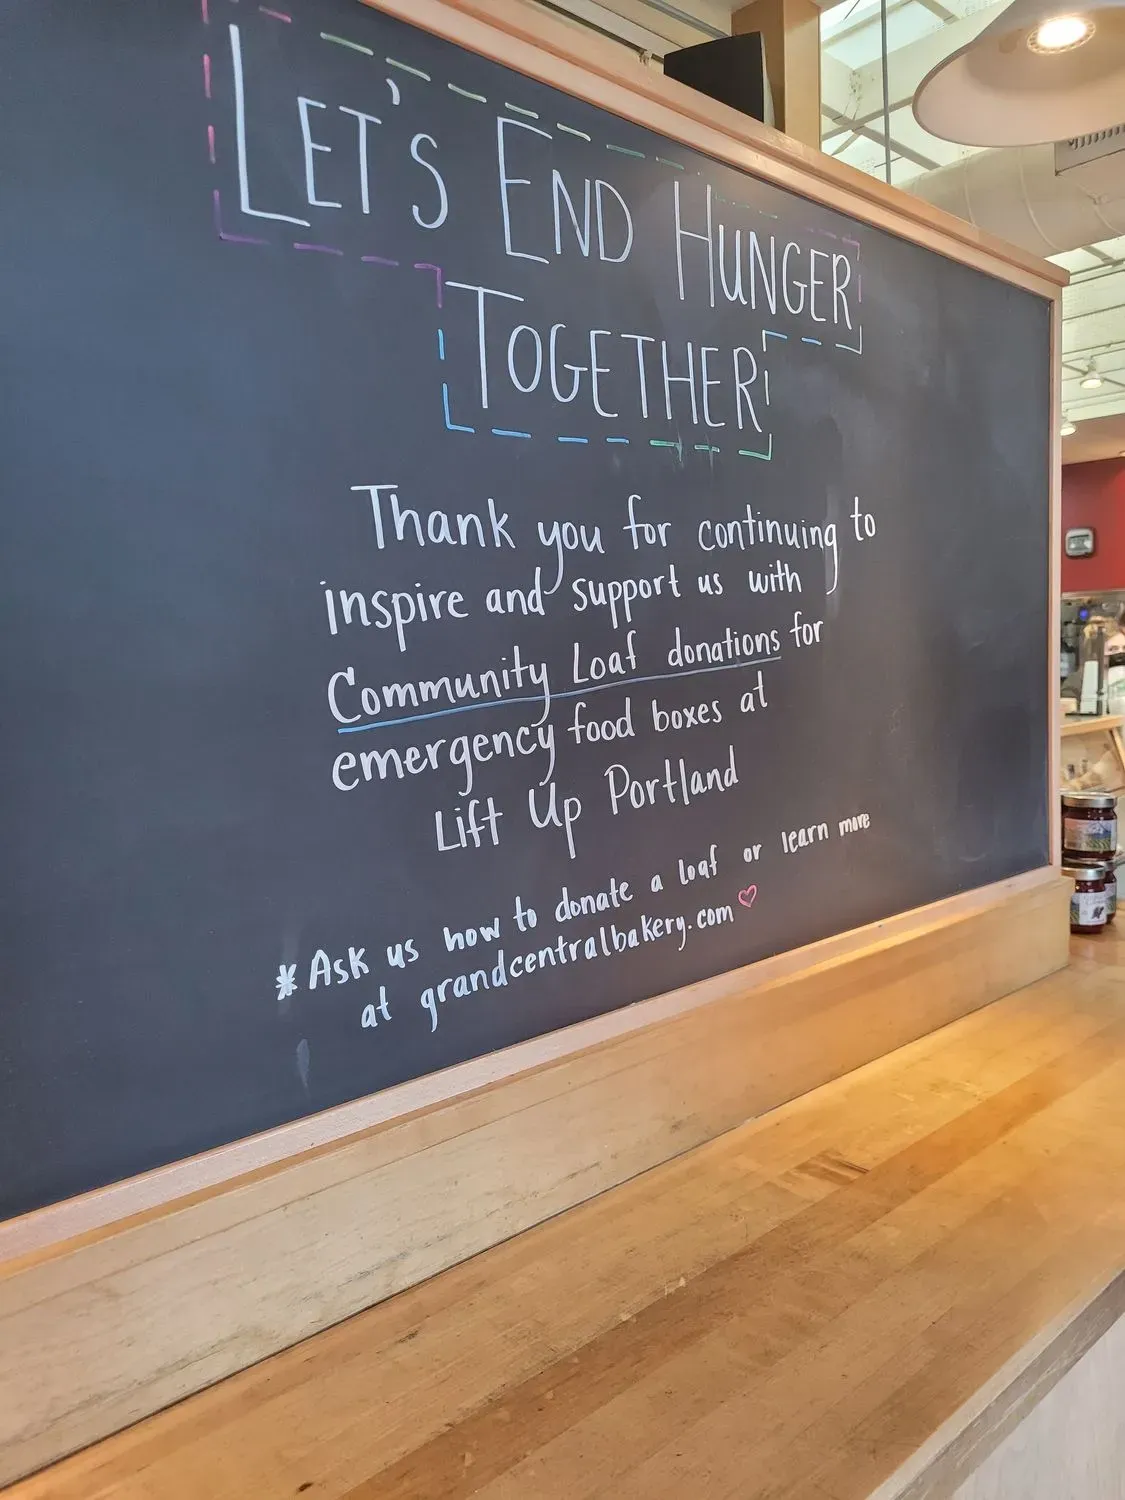 LET'S END HUNGER
TOGETHER
Thank you for continuing to
inspire and support us with
Community Loaf donations for
emergency food boxes at
Lift Up Portland
*Ask us how to donate a loaf or learn more
at grandcentralbakery.com